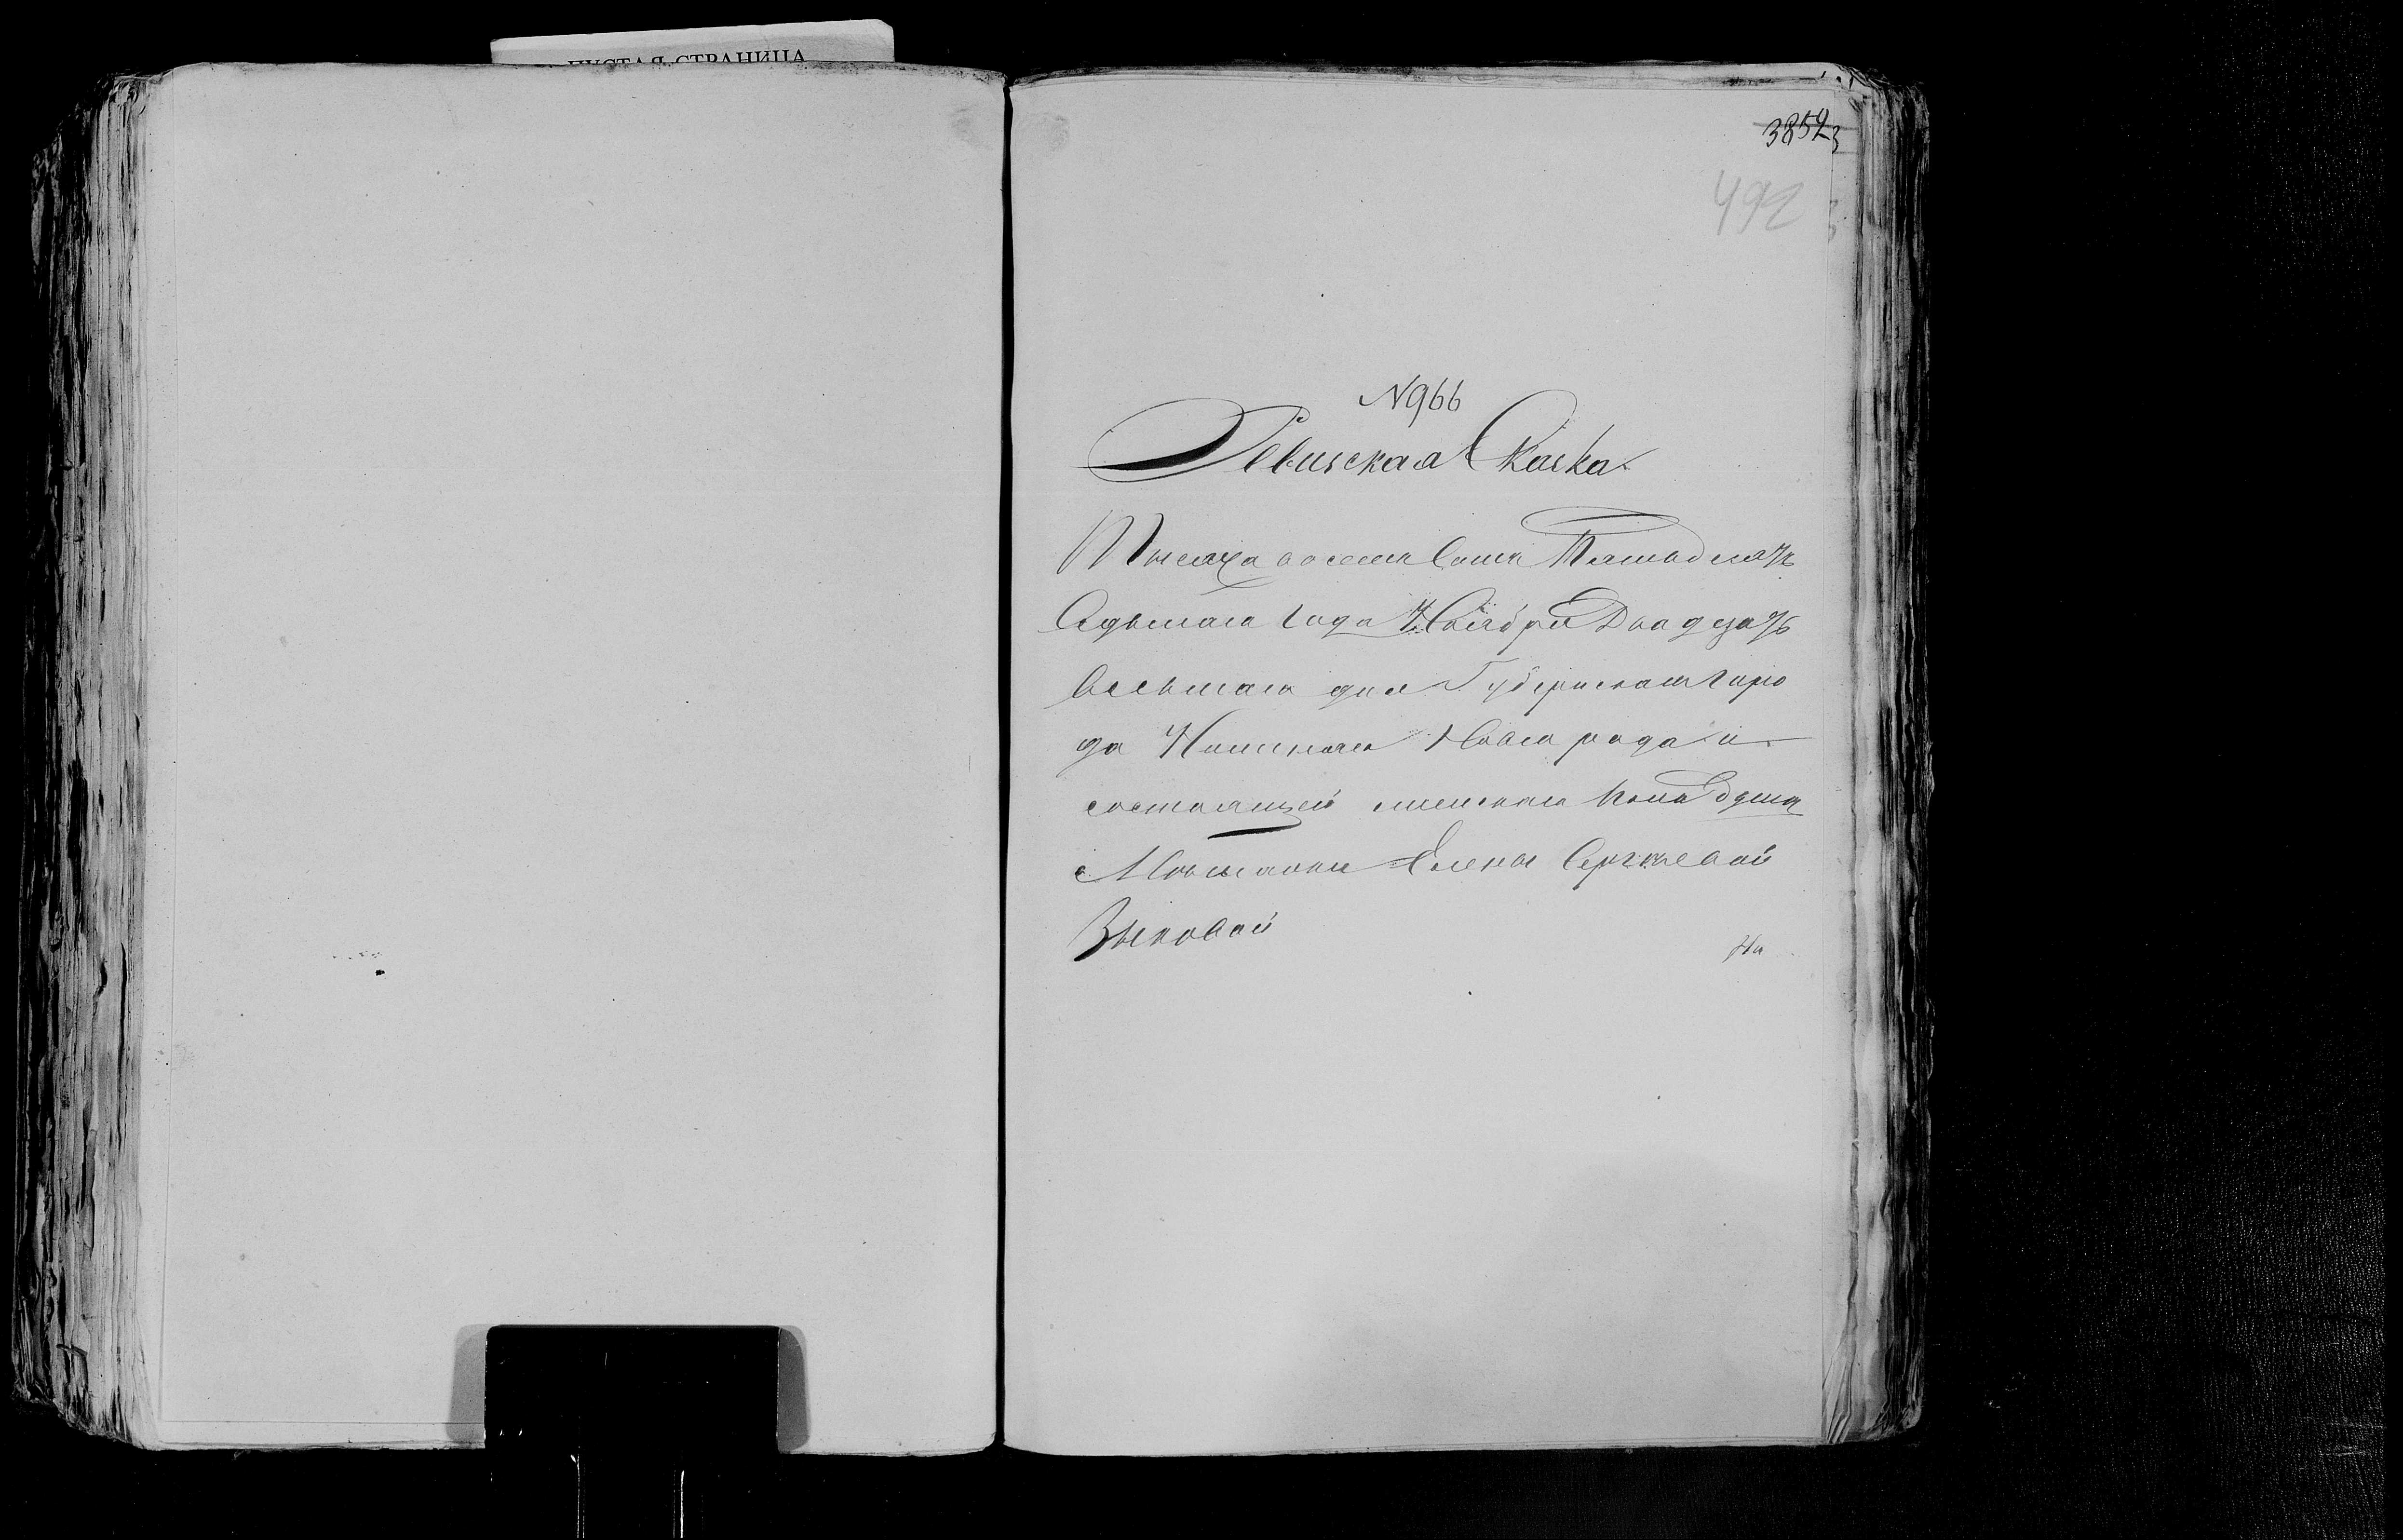 ПУСТАЯ СТРАНИЦА
3852
492
N966
Ревизская Сказка
Тысяча восемь Сотъ Пятьдесятъ
Седьмаго Года Ноября Двадцать
Восьмаго дня Губернскаго горо
да Нижняго Нова города и
состоящей
Мѣщанки Елены Сергѣевой
Зыковой
На